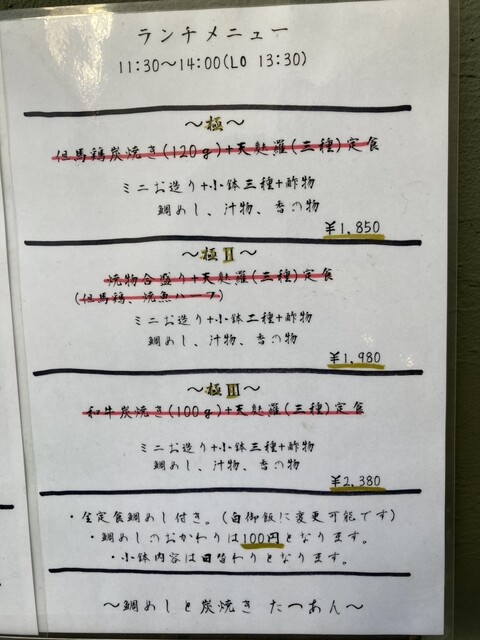 ランチメニュー
11:30〜14:00(LO 13:30)
〜極〜
但馬鶏炭焼き(120g)+天麩羅(三種)定食
ミニお造り+小鉢三種+酢物
鯛めし、汁物、香の物
¥1,850
〜極Ⅱ〜
焼物合盛り+天麩羅(三種)定食
(但馬鶏、焼魚ハーフ)
ミニお造り+小鉢二種+酢物
鯛めし、汁物、香の物
¥1,980
〜極Ⅲ〜
和牛炭焼き(100g)+天麩羅(三種)定食
ミニお造り+小鉢三種+酢物
鯛めし、汁物、香の物
¥2,380
・全定食鯛めし付き。(白御飯に変更可能です)
・鯛めしのおかわりは100円となります。
・小鉢内容は日替わりとなります。
〜鯛めしと炭焼き たつあん〜